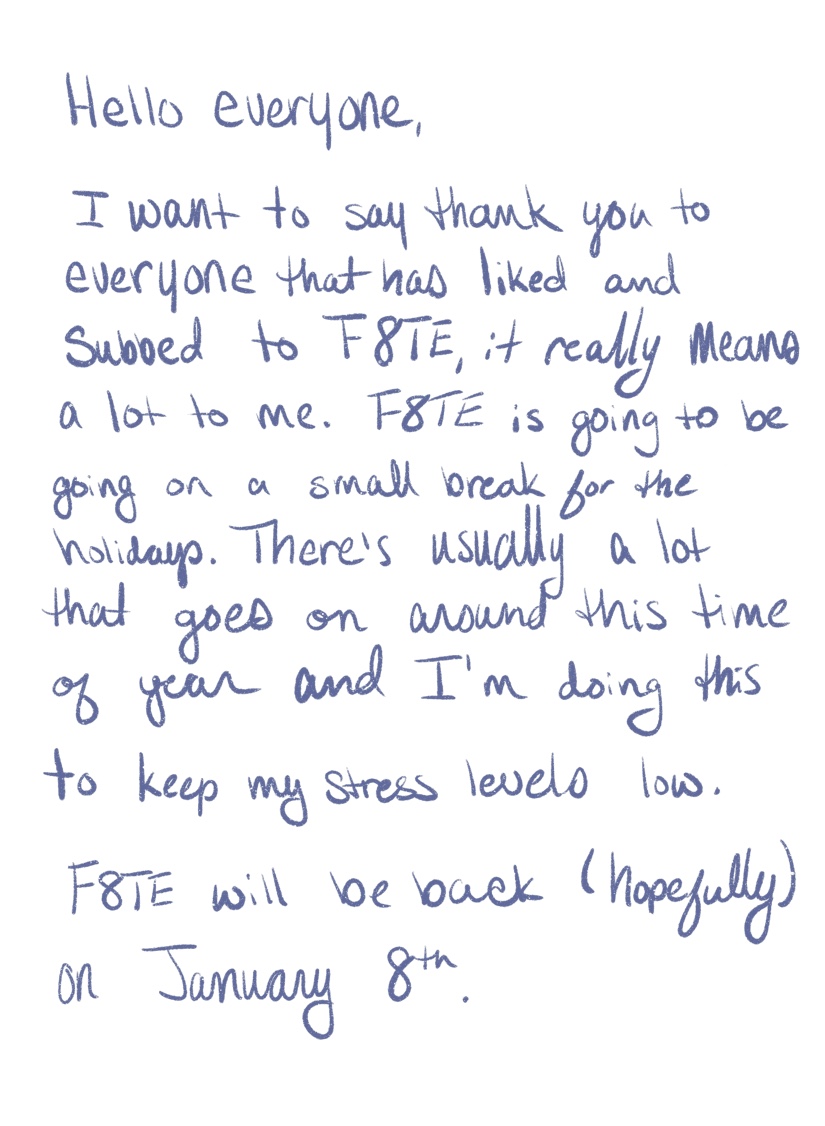 Hello everyone,
I want to say thank you to
everyone that has liked and
Subbed to F8TE, it really Means
a lot to me. F8TE is going to be
going on a small break for the
holidays. There's usually a lot
that goes on around this time
of year and I'm doing this
to keep my stress levels low.
F8TE will be back (hopefully)
on January 8th.